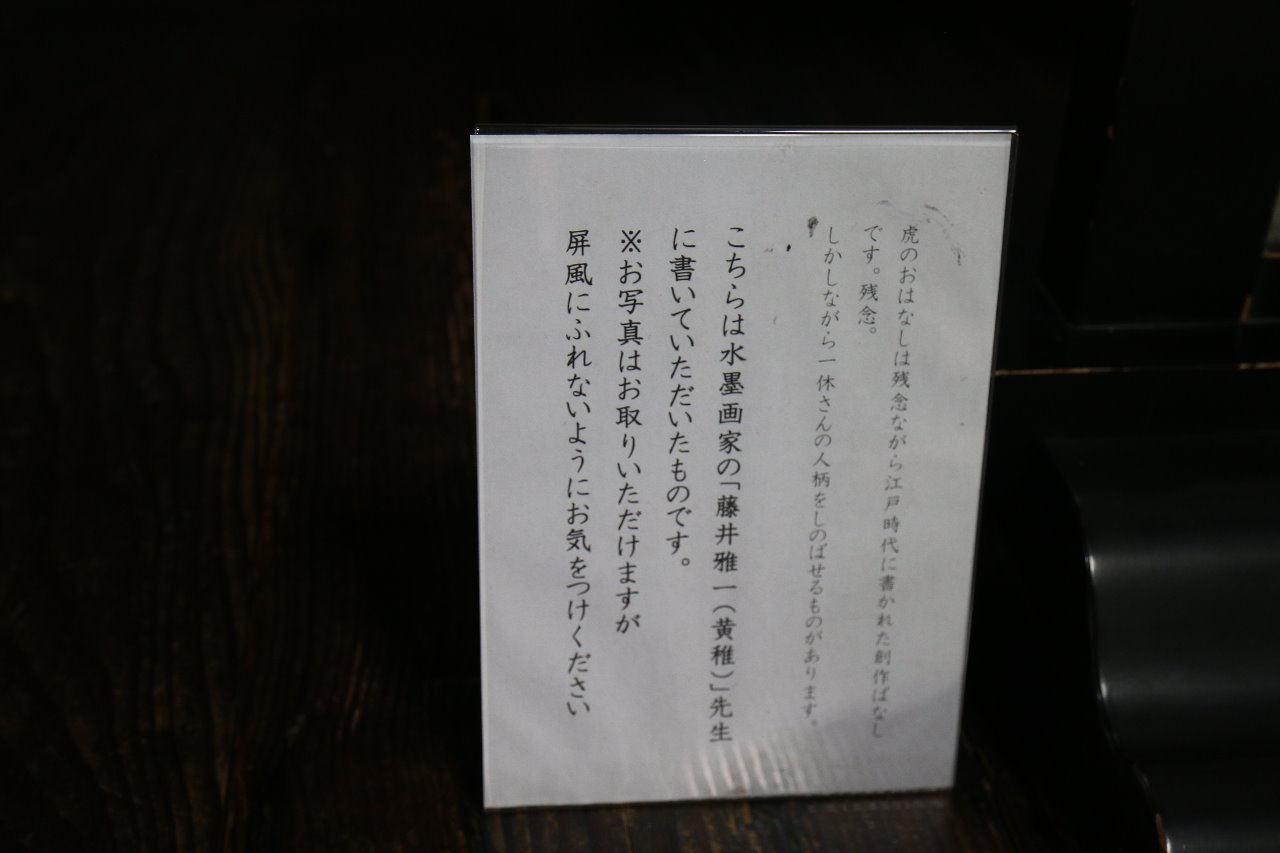 虎のおはなしは残念ながら江戸時代に書かれた創作ばなし
です。残念。
しかしながら一休さんの人柄をしのばせるものがあります。
こちらは水墨画家の「藤井雅一（黄稚）」先生
に書いていただいたものです。
※お写真はお取りいただけますが
屏風にふれないようにお気をつけください